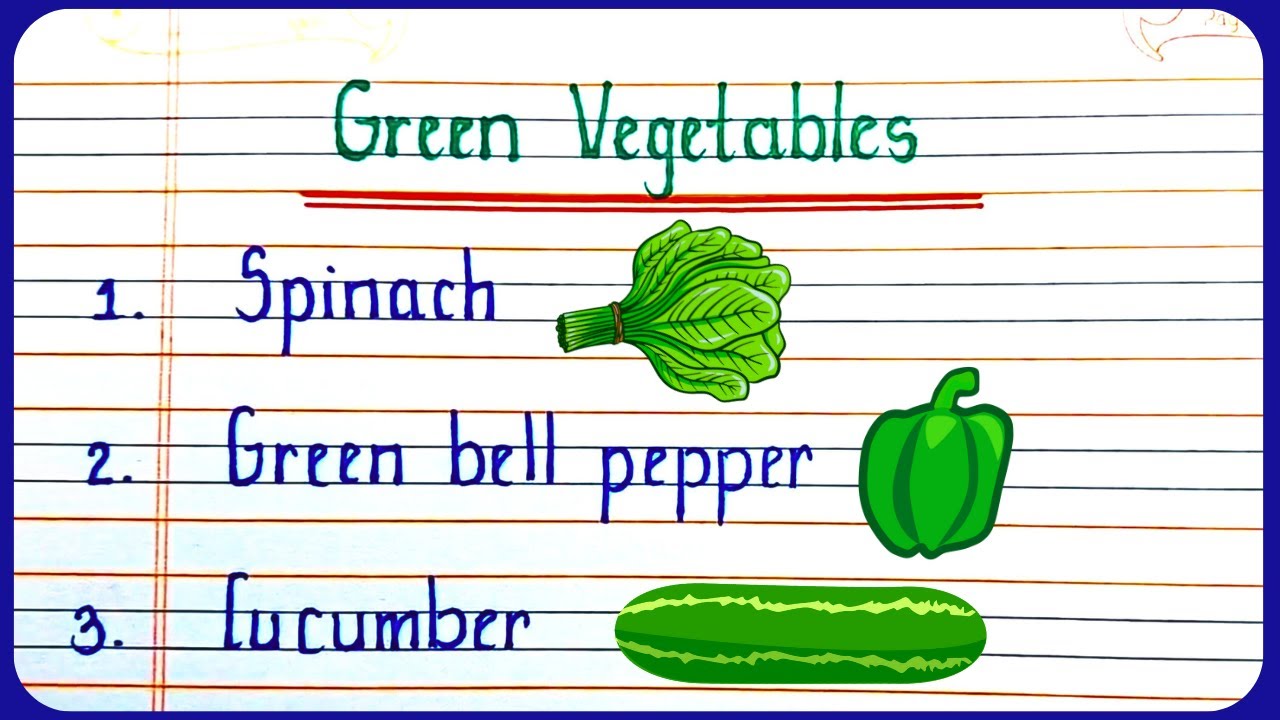 Green Vegetables
1. Spinach
2. Green bell pepper
3. Cucumber